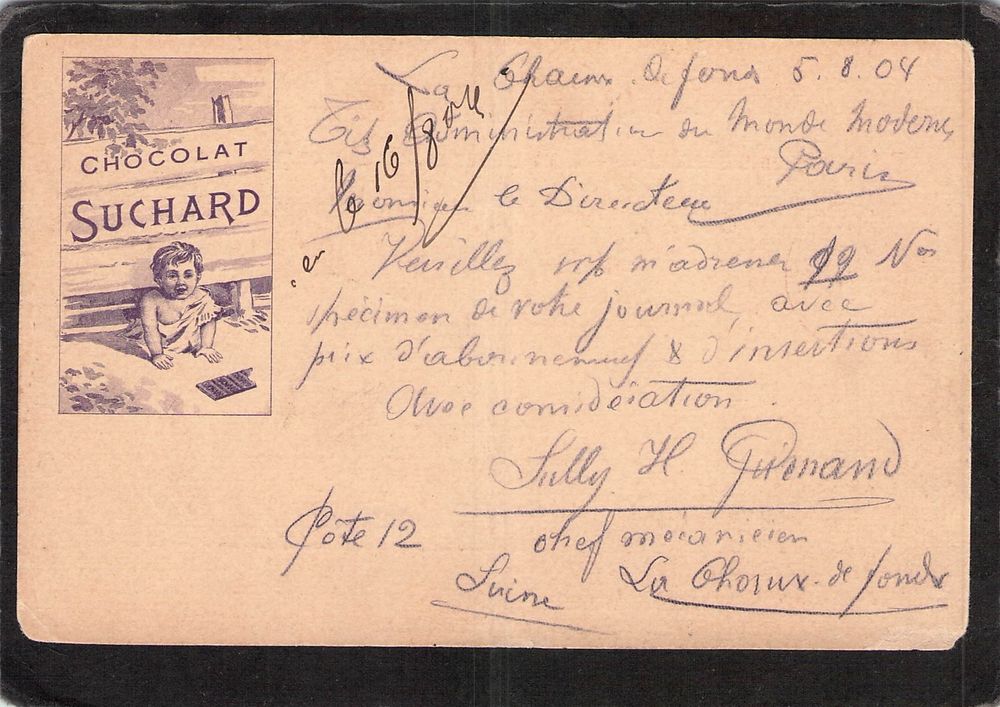 CHOCOLAT
SUCHARD
La Chaux-de-fonds 5.8.04
administration du Monde Moderne
Paris
Monsieur le Directeur
Veuillez svp m'adresser Nos
spécimen de votre journal, avec
prix d'abonnement & d'insertions
Avec considération.
Sully H.
Côte 12
chef mécanicien
Suisse
La Chaux-de-fonds
16/8 04
en